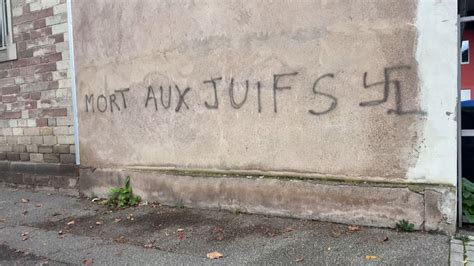 MORT AUX JUIFS 卐